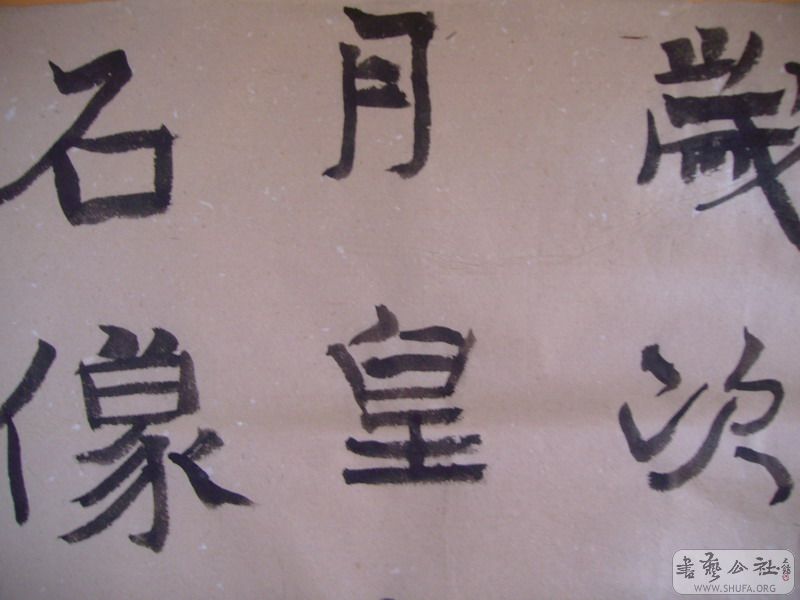 歲次
月皇
石像
書藝公社
WWW.SHUFA.ORG